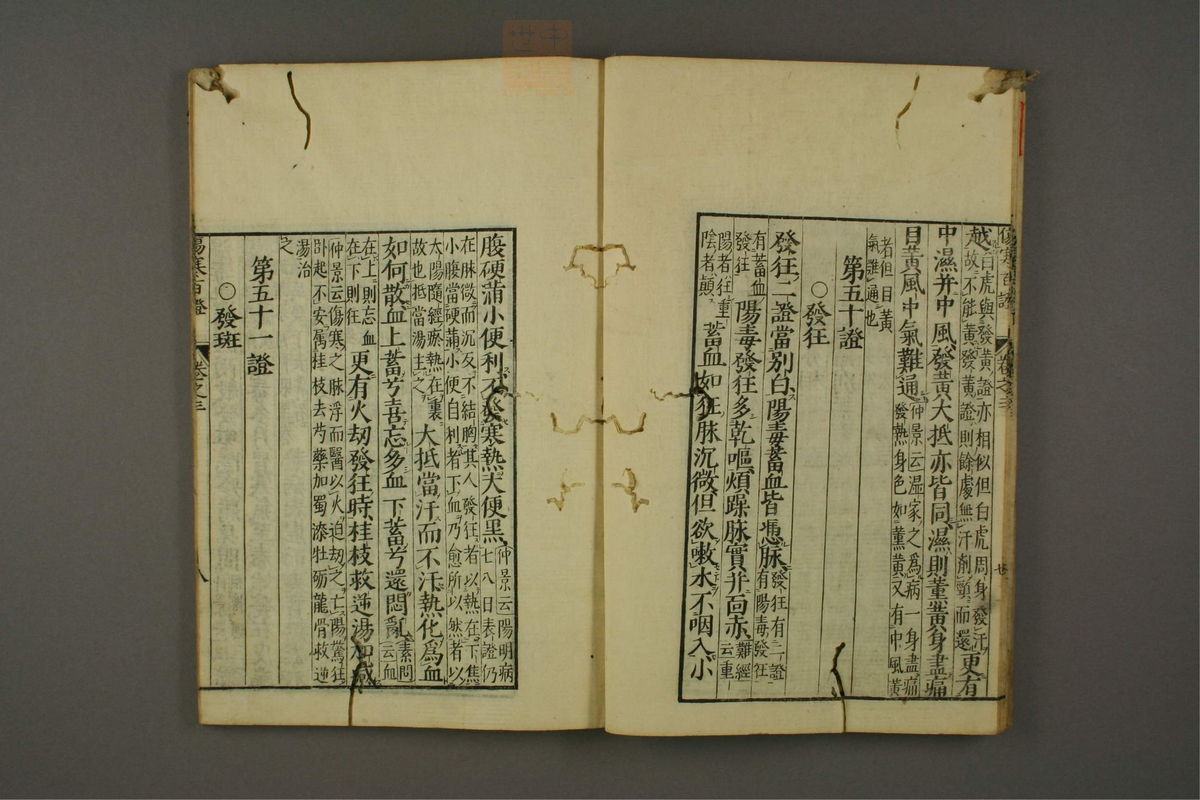 傷寒百證
卷之三
越白虎與發黃證亦相似但白虎周身發汗
故不能黃發黃證則餘處無汗劑頸而還更有
中濕并中風發黃大抵亦皆同濕則薰黃身盡痛
目黃風中氣難通仲景云濕家之爲病一身盡痛
發熱身色如薰黃又有中風黃
者但目黃
氣難通也
第五十證
○發狂
發狂二證當別白陽毒蓄血皆慿脉發狂有二證
有陽毒發狂
有蓄血
發狂
陽毒發狂多乾嘔煩躁脉實并面赤難經
云重
陽者狂重
陰者顛
蓄血如狂脉沉微但欲嗽水不咽入小
腹硬滿小便利不發寒熱大便黑仲景云陽明病
七八日表證仍
在脉微而沉反不結胸其人發狂者以熱在下焦
小腹當硬滿小便自利者下血乃愈所以然者以
太陽隨經瘀熱在裏
故也抵當湯主之
大抵當汗而不汗熱化爲血
如何散血上蓄兮喜忘多血下蓄兮還悶亂素問
云血
在上則忘血
在下則狂
更有火劫發狂時桂枝救逆湯加減
仲景云傷寒之脉浮而醫以火迫劫之亡陽驚狂
卧起不安屬桂枝去芍藥加蜀漆牡礪龍骨救逆
湯治
之
第五十一證
○發斑
傷寒百證
卷之三